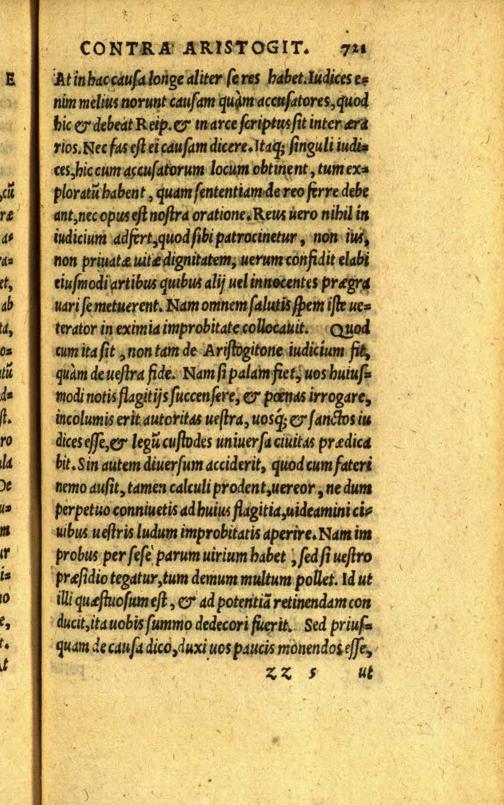 CONTRA ARISTOGIT. 721
E
At in hac causa longe aliter se res habet. Iudices e⸗
nim melius norunt causam quàm accusatores, quod
hic & debeat Reip. & in arce scriptus sit inter æra
rios. Nec fas est ei causam dicere. Itaq; singuli iudi⸗
ces, hic cum accusatorum locum obtinent, tum ex⸗
ploratũ habent, quam sententiam de reo ferre debe
ant, nec opus est nostra oratione. Reus uero nihil in
iudicium adfert, quod sibi patrocinetur, non ius,
non priuatæ uitæ dignitatem, uerum confidit elabi
eiusmodi artibus quibus alij uel innocentes prægra
uari se metuerent. Nam omnem salutis spem iste ue⸗
terator in eximia improbitate collocauit. Quod
cum ita sit, non tam de Aristogitone iudicium fit,
quàm de uestra fide. Nam si palam fiet, uos huius⸗
modi notis flagitijs succensere, & pœnas irrogare,
incolumis erit autoritas uestra, uosq; & sanctos iu
dices esse, & legũ custodes uniuersa ciuitas prædica
bit. Sin autem diuersum acciderit, quod cum fateri
nemo ausit, tamen calculi prodent, uereor, ne dum
perpetuo conniuetis ad huius flagitia, uideamini ci⸗
uibus uestris ludum improbitatis aperire. Nam im
probus per sese parum uirium habet, sed si uestro
præsidio tegatur, tum demum multum pollet. Id ut
illi quæstuosum est, & ad potentiã retinendam con
ducit, ita uobis summo dedecori fuerit. Sed prius⸗
quam de causa dico, duxi uos paucis monendos esse,
ZZ 5 ut